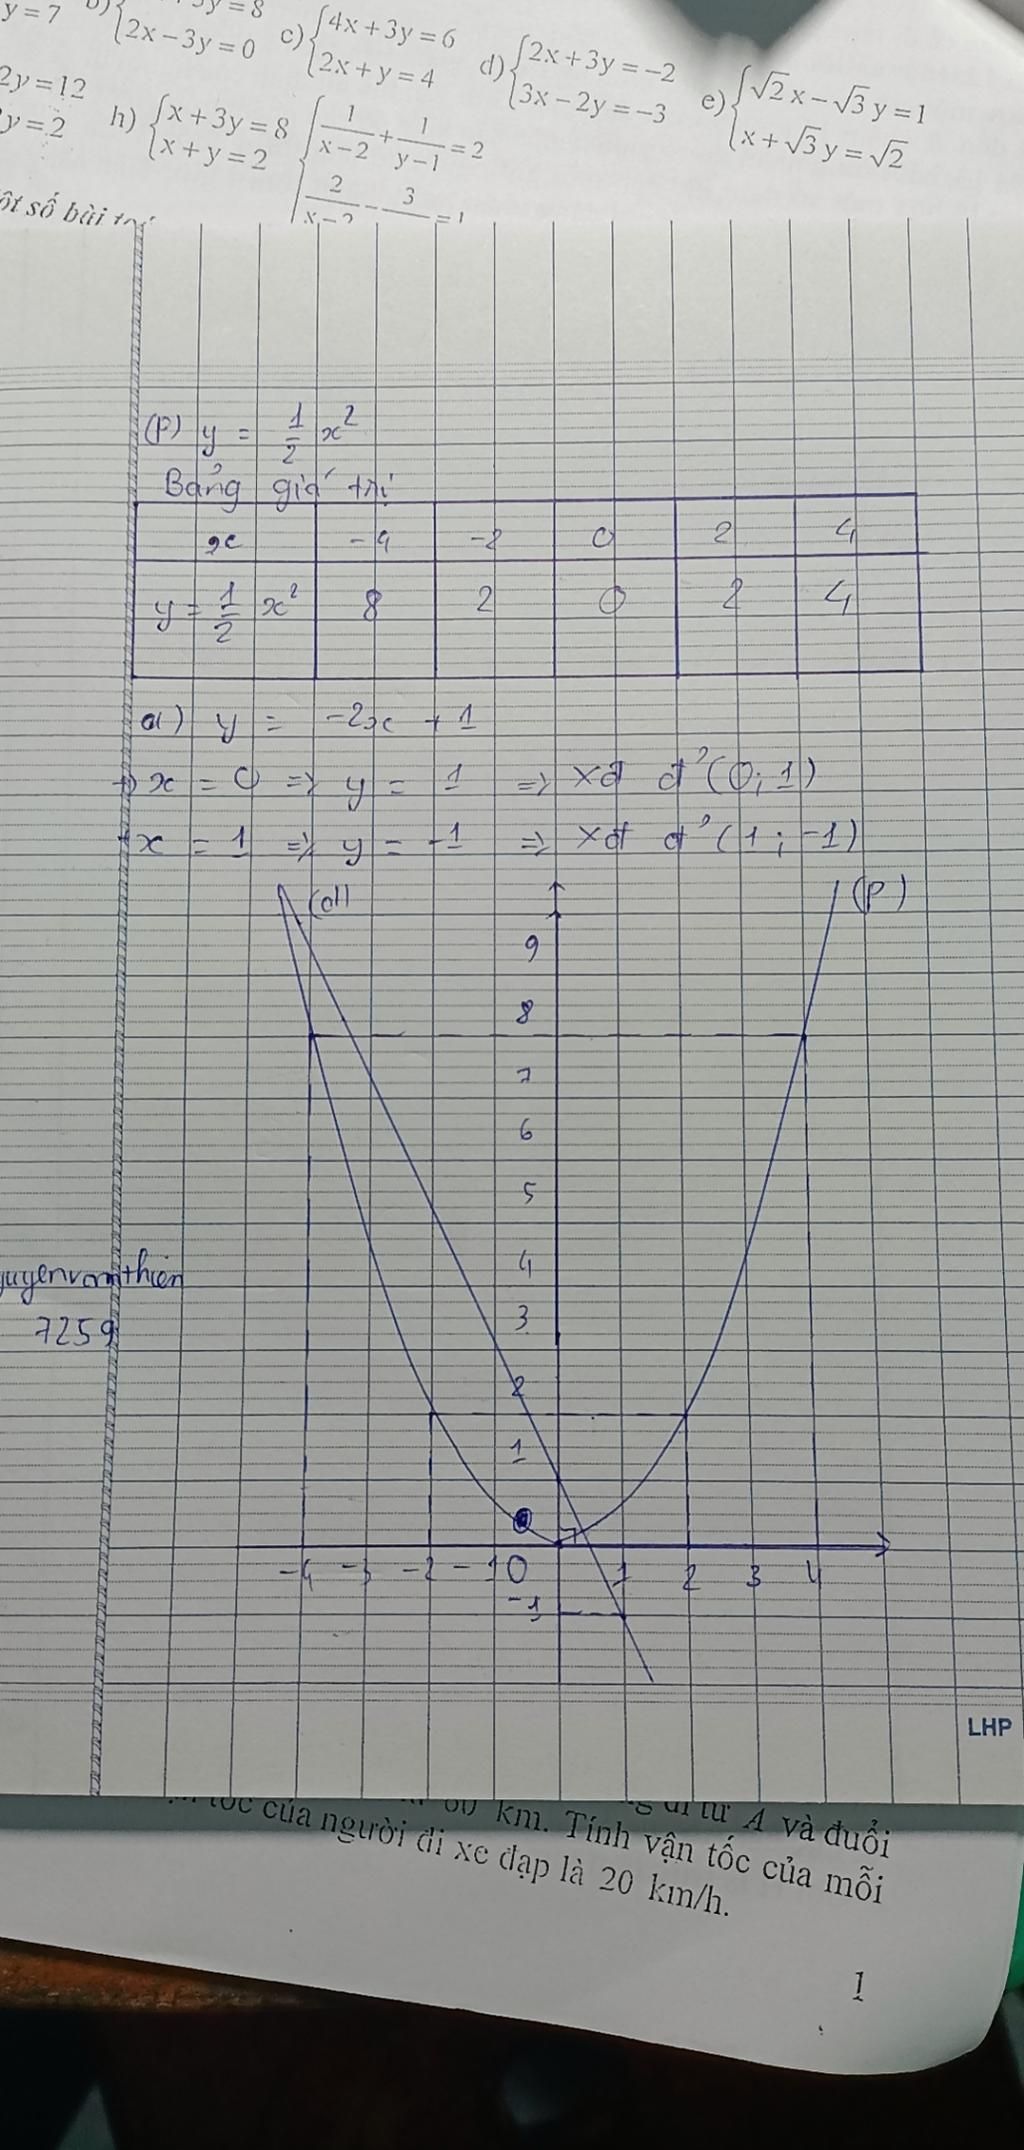 y = 7
2x − 3y = 0
c) {4x + 3y = 6
2x + y = 4
d) {2x + 3y = −2
3x − 2y = −3
e) {√2x − √3y = 1
x + √3y = √2
2y = 12
y = 2
h) {x + 3y = 8
x + y = 2
1/(x−2) + 1/(y−1) = 2
một số bài
(P) y = 1/2 x²
Bảng giá trị
x -4 -2 0 2 4
y = 1/2 x² 8 2 0 2 4
d) y = -2x + 1
+ x = 0 => y = 1 => xđ đ' (0; 1)
+ x = 1 => y = -1 => xđ đ' (1; -1)
(d) (P)
9
8
7
6
5
4
3
2
1
-4 -3 -2 -1 0 1 2 3 4
-1
guyenvanthien
7259
LHP
km. Tính vận tốc của mỗi
đi từ A và đuổi
tốc của người đi xe đạp là 20 km/h.
1